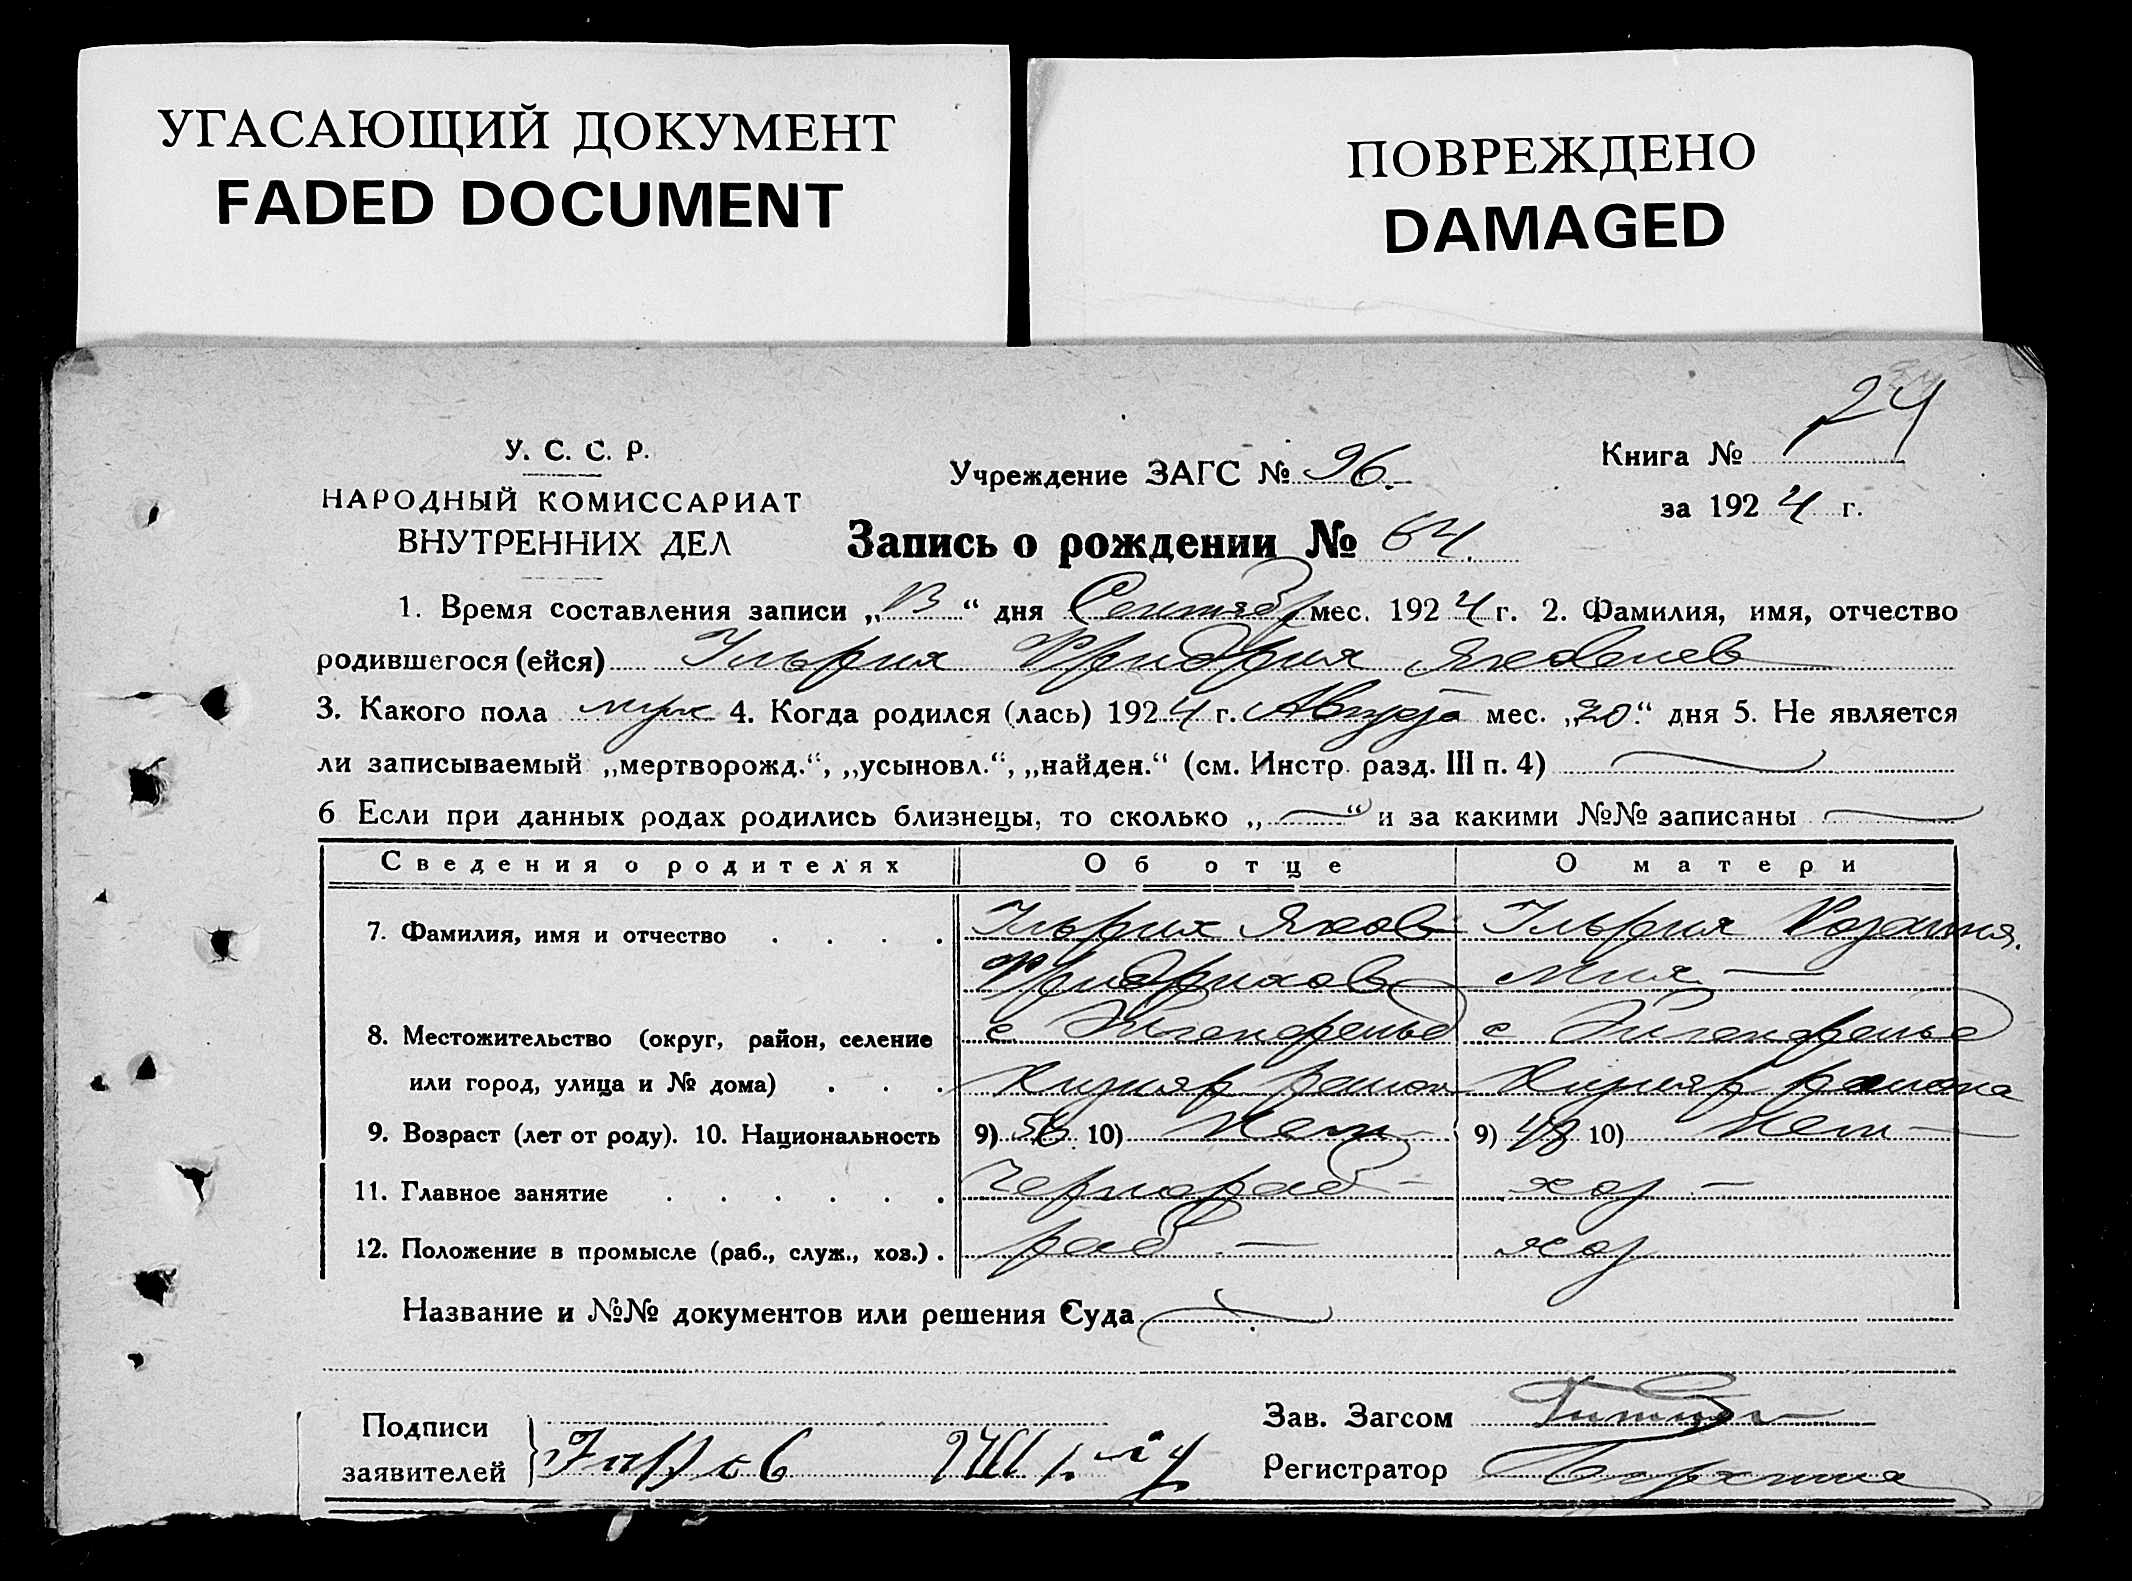 УГАСАЮЩИЙ ДОКУМЕНТ
FADED DOCUMENT
ПОВРЕЖДЕНО
DAMAGED
24
У. С. С. Р.
НАРОДНЫЙ КОМИССАРИАТ
ВНУТРЕННИХ ДЕЛ
Учреждение ЗАГС № 96.
Книга №
за 1924 г.
Запись о рождении № 64.
1. Время составления записи „13“ дня Сентяб мес. 1924 г. 2. Фамилия, имя, отчество
родившегося (ейся) Ульрих Фридрих Яковлев
3. Какого пола муж 4. Когда родился (лась) 1924 г. Августа мес. „20.“ дня 5. Не является
ли записываемый „мертворожд.“, „усыновл.“, „найден.“ (см. Инстр. разд. III п. 4)
6 Если при данных родах родились близнецы, то сколько „ “ и за какими №№ записаны
Сведения о родителях Об отце О матери
7. Фамилия, имя и отчество Ульрих Яков Ульрих
Фридрихов
8. Местожительство (округ, район, селение с с
или город, улица и № дома) район района
9. Возраст (лет от роду). 10. Национальность 9) 10) Нем 9) 48 10) Нем
11. Главное занятие Чернораб хоз
12. Положение в промысле (раб., служ., хоз.) раб хоз
Название и №№ документов или решения Суда
Подписи
заявителей
Зав. Загсом
Регистратор